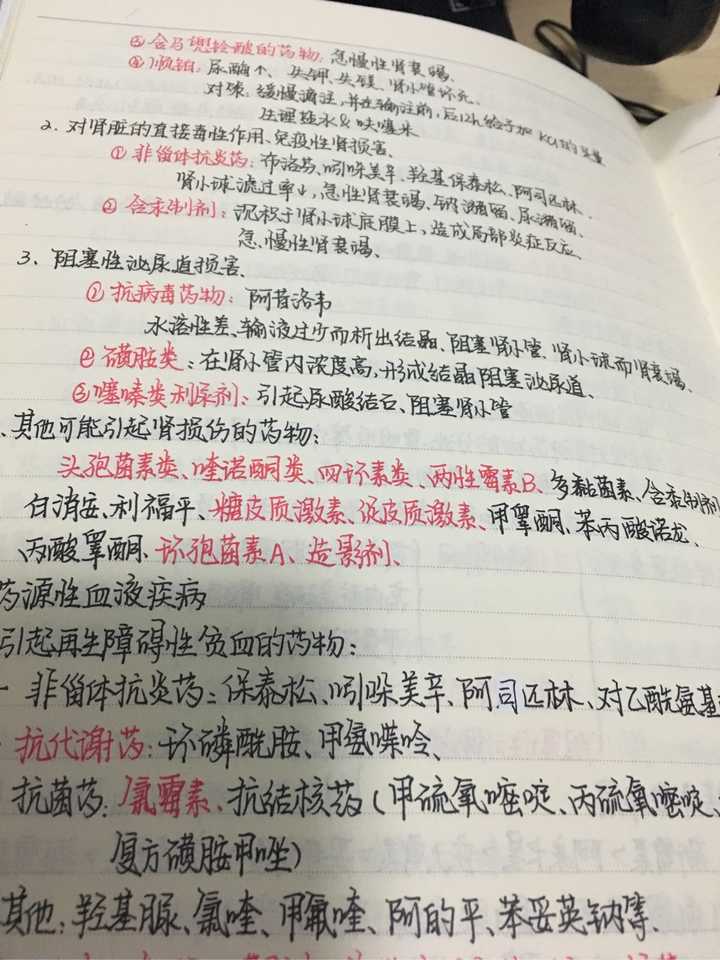 ③含马兜铃酸的药物:急慢性肾衰竭、
④顺铂:尿酶↑、失钾、失镁、肾小管坏死、
对策:缓慢滴注,并在输注前,后12h给予加KCl的等量
生理盐水&呋噻米
2、对肾脏的直接毒性作用、免疫性肾损害、
①非甾体抗炎药:布洛芬、吲哚美辛、羟基保泰松、阿司匹林、
肾小球滤过率↓,急性肾衰竭、钠潴留、尿潴留、
②含汞制剂:沉积于肾小球底膜上,造成局部炎症反应、
急、慢性肾衰竭、
3、阻塞性泌尿道损害、
①抗病毒药物:阿昔洛韦
水溶性差、输液过少而析出结晶、阻塞肾小管、肾小球而肾衰竭、
②磺胺类:在肾小管内浓度高,形成结晶阻塞泌尿道、
③噻嗪类利尿剂:引起尿酸结石、阻塞肾小管
、其他可能引起肾损伤的药物:
头孢菌素类、喹诺酮类、四环素类、两性霉素B、多黏菌素、含汞制剂
白消安、利福平、糖皮质激素、促皮质激素、甲睾酮、苯丙酸诺龙、
丙酸睾酮、环孢菌素A、造影剂、
药源性血液疾病
引起再生障碍性贫血的药物:
非甾体抗炎药:保泰松、吲哚美辛、阿司匹林、对乙酰氨基
抗代谢药:环磷酰胺、甲氨喋呤、
抗菌药:氯霉素、抗结核药(甲硫氧嘧啶、丙硫氧嘧啶、
复方磺胺甲唑)
其他:羟基脲、氯喹、甲氟喹、阿的平、苯妥英钠等、